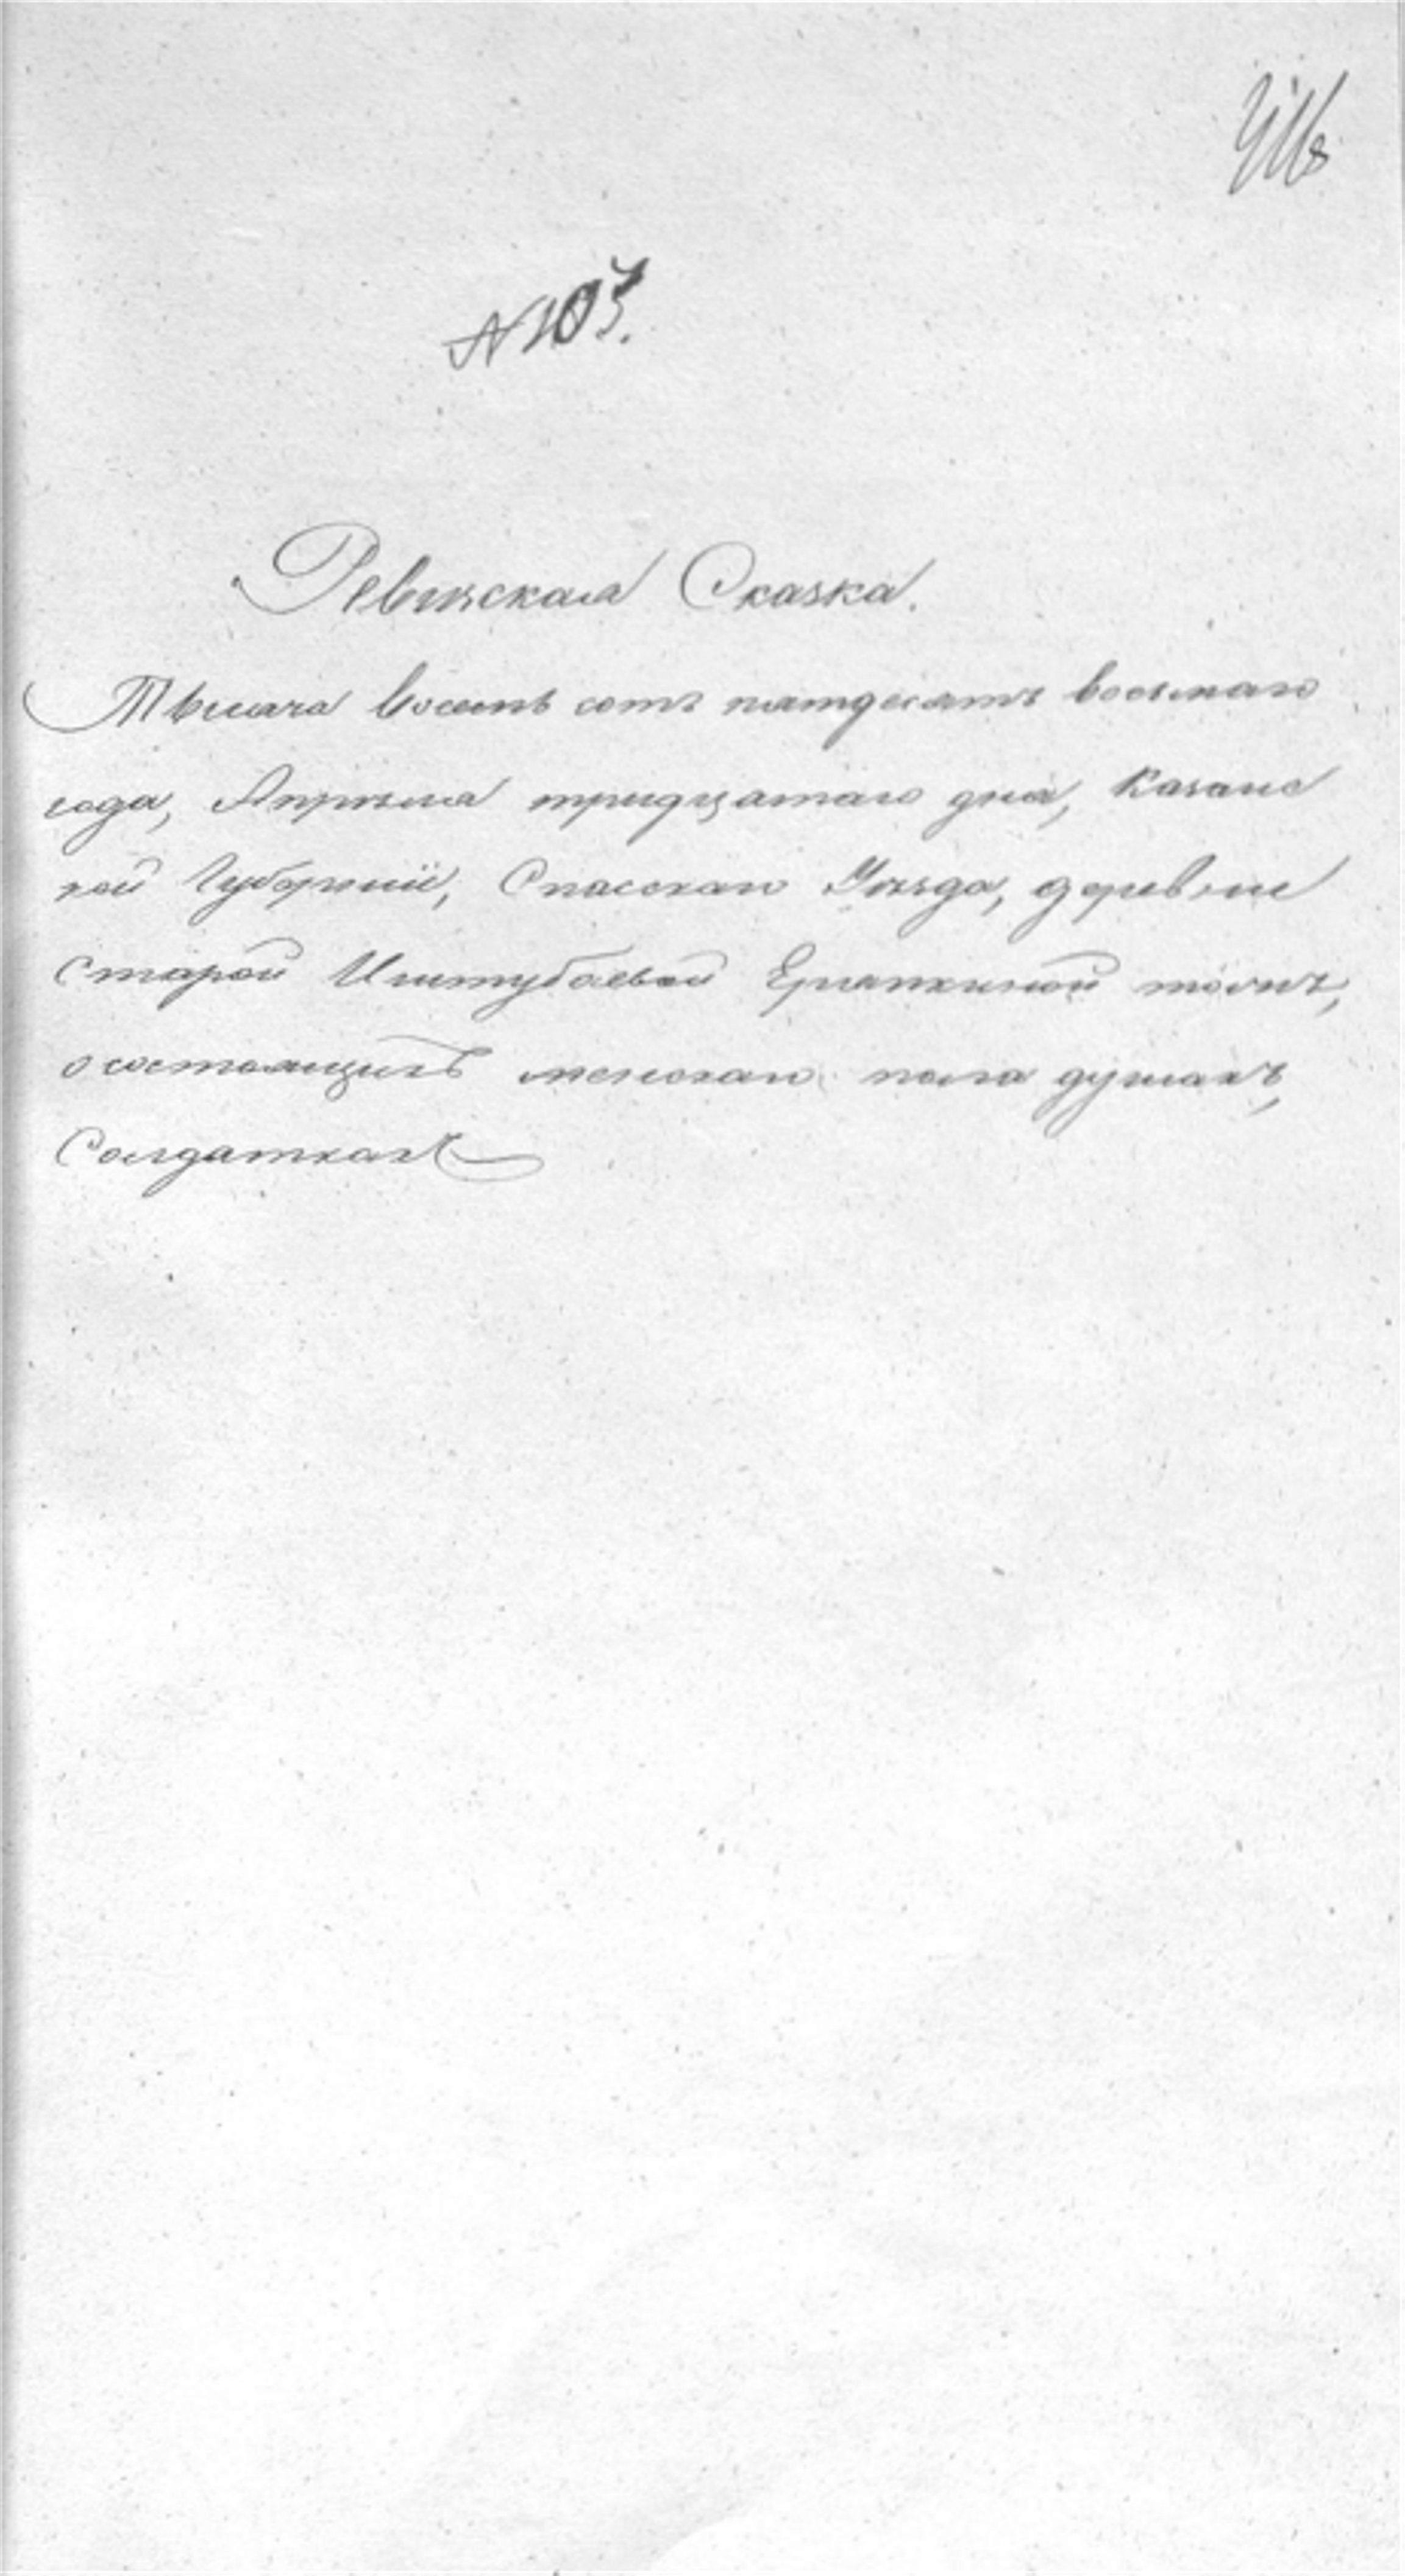 № 103.
Ревизская Сказка.
Тысяча восемь сотъ пятдесятъ восьмаго
года, Апрѣля тридцатаго дня, Казанс
кой Губерніи, Спаскаго Уѣзда, деревни
Старой Иштубаевой тожъ,
о состоящихъ женскаго пола душахъ,
Солдаткахъ